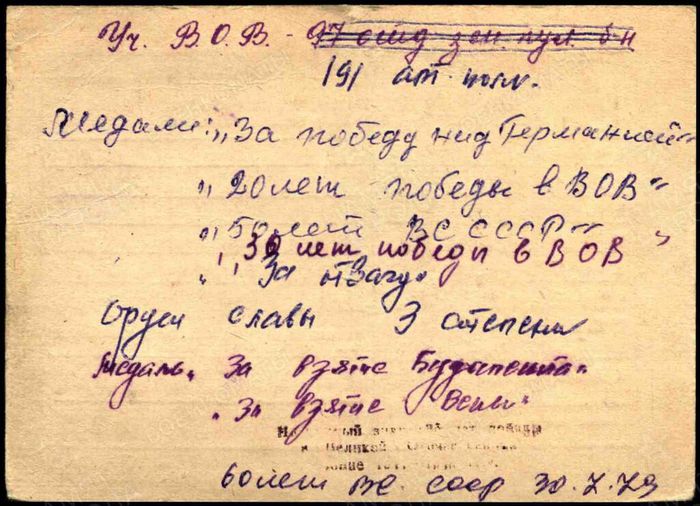 Уч. В.О.В. - 97 отд зен. пул. б-н
191 ат. полк.
Медали: „За победу над Германией"
„20 лет победы в ВОВ"
„50 лет ВС СССР"
„30 лет победы в ВОВ"
„За отвагу"
Орден славы 3 степени
Медаль „За взятие Будапешта"
„За взятие Вены"
лет победы
в Великой
60 лет ВС. СССР 30.X.79